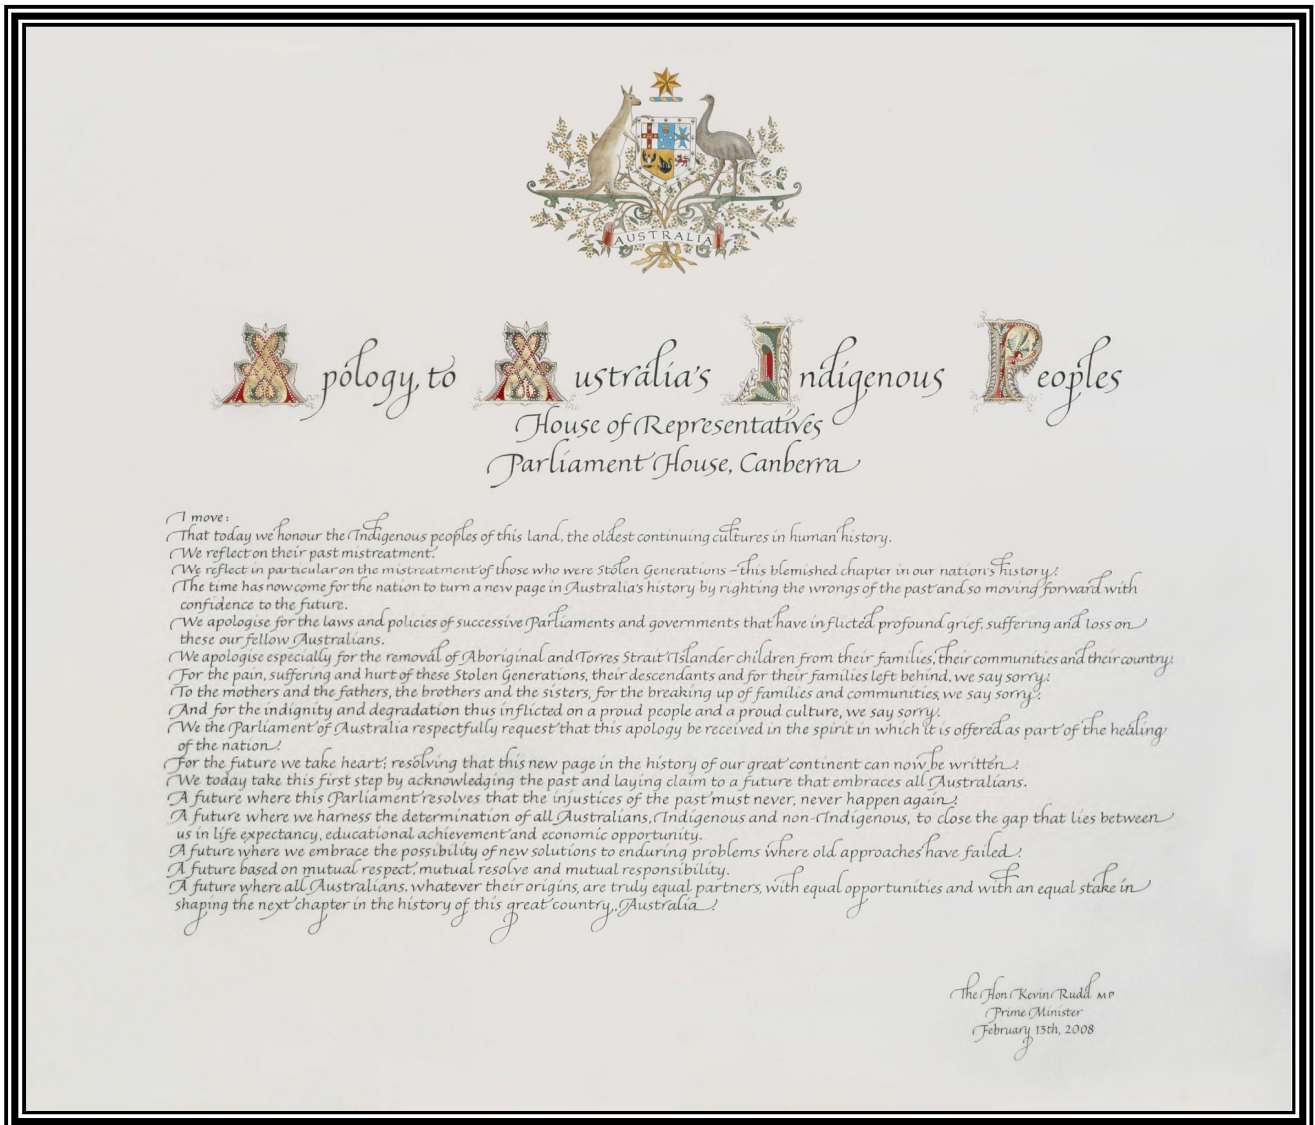 AUSTRALIA
Apology to Australia's Indigenous Peoples
House of Representatives
Parliament House, Canberra
I move:
That today we honour the Indigenous peoples of this land, the oldest continuing cultures in human history.
We reflect on their past mistreatment.
We reflect in particular on the mistreatment of those who were Stolen Generations – this blemished chapter in our nation's history.
The time has now come for the nation to turn a new page in Australia's history by righting the wrongs of the past and so moving forward with
confidence to the future.
We apologise for the laws and policies of successive Parliaments and governments that have inflicted profound grief, suffering and loss on
these our fellow Australians.
We apologise especially for the removal of Aboriginal and Torres Strait Islander children from their families, their communities and their country.
For the pain, suffering and hurt of these Stolen Generations, their descendants and for their families left behind, we say sorry.
To the mothers and the fathers, the brothers and the sisters, for the breaking up of families and communities, we say sorry.
And for the indignity and degradation thus inflicted on a proud people and a proud culture, we say sorry.
We the Parliament of Australia respectfully request that this apology be received in the spirit in which it is offered as part of the healing
of the nation.
For the future we take heart; resolving that this new page in the history of our great continent can now be written.
We today take this first step by acknowledging the past and laying claim to a future that embraces all Australians.
A future where this Parliament resolves that the injustices of the past must never, never happen again.
A future where we harness the determination of all Australians, Indigenous and non-Indigenous, to close the gap that lies between
us in life expectancy, educational achievement and economic opportunity.
A future where we embrace the possibility of new solutions to enduring problems where old approaches have failed.
A future based on mutual respect, mutual resolve and mutual responsibility.
A future where all Australians, whatever their origins, are truly equal partners, with equal opportunities and with an equal stake in
shaping the next chapter in the history of this great country, Australia.
The Hon Kevin Rudd MP
Prime Minister
February 13th, 2008